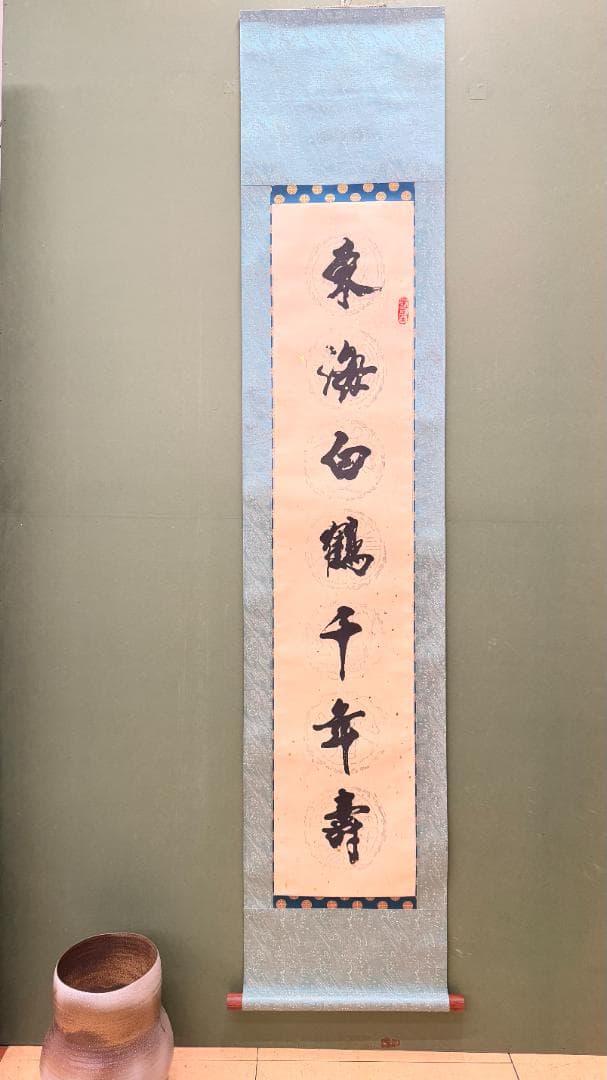 東海白鶴千年壽